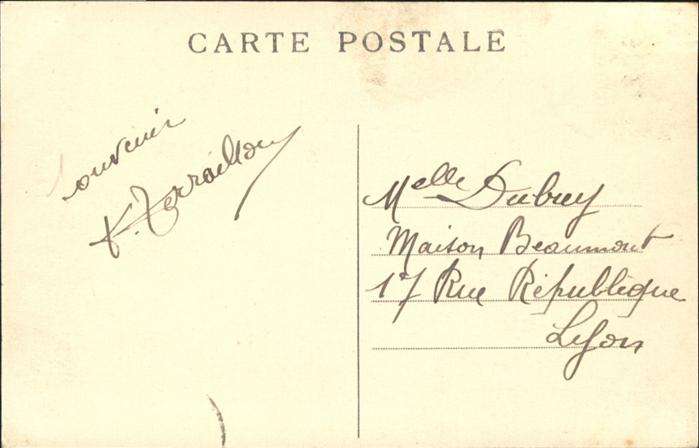 CARTE POSTALE
souvenir
Terraillon
Melle Dubuy
Maison Beaumont
17 Rue République
Lyon